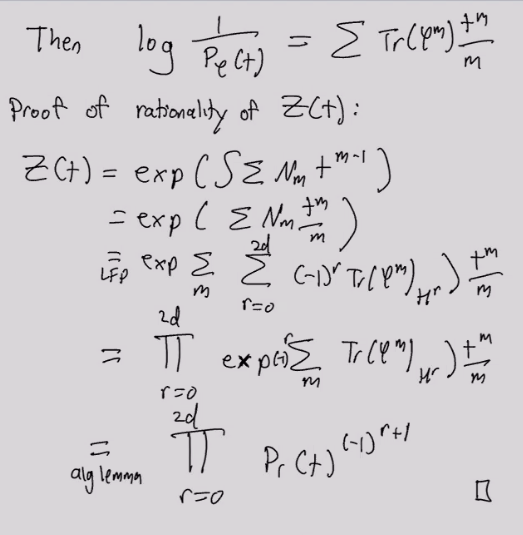 Then log 1/Pφ(t) = Σ Tr(φ^m) t^m/m
Proof of rationality of Z(t):
Z(t) = exp(∫Σ N_m t^{m-1})
= exp(Σ N_m t^m/m)
=_{LFP} exp Σ_m Σ_{r=0}^{2d} (-1)^r Tr(φ^m)_{H^r}) t^m/m
= Π_{r=0}^{2d} exp (-1)^r Σ_m Tr(φ^m)_{H^r}) t^m/m
=_{alg lemma} Π_{r=0}^{2d} P_r(t)^{(-1)^{r+1}} □